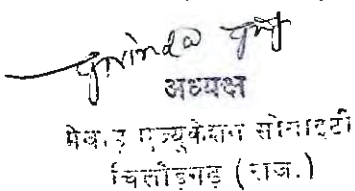 Govinda
अध्यक्ष
मेवाड़ एज्यूकेशन सोसाइटी
चित्तौड़गढ़ (राज.)